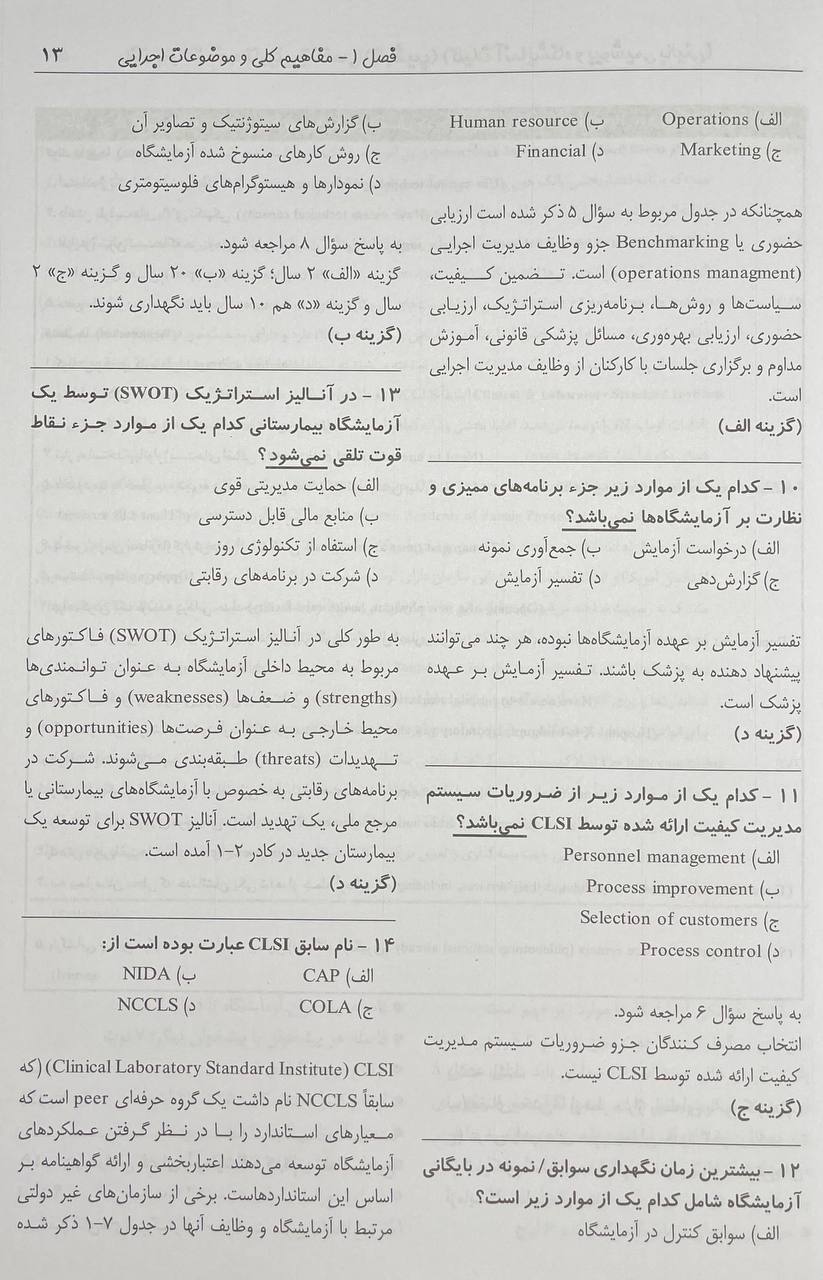 فصل ۱ - مفاهیم کلی و موضوعات اجرایی ۱۳
الف) Operations ب) Human resource
ج) Marketing د) Financial
همچنانکه در جدول مربوط به سؤال ۵ ذکر شده است ارزیابی
حضوری یا Benchmarking جزو وظایف مدیریت اجرایی
(operations managment) است. تـضمین کـیفیت،
سـیاست‌ها و روش‌هـا، بـرنامه‌ریزی اسـتراتـژیک، ارزیـابی
حضوری، ارزیابی بهره‌وری، مسائل پزشکی قانونی، آمـوزش
مداوم و برگزاری جلسات با کارکنان از وظایف مدیریت اجرایی
است.
(گزینه الف)
۱۰ - کدام یک از موارد زیر جزء برنامه‌های ممیزی و
نظارت بر آزمایشگاه‌ها نمی‌باشد؟
الف) درخواست آزمایش ب) جمع‌آوری نمونه
ج) گزارش‌دهی د) تفسیر آزمایش
تفسیر آزمایش بر عهده آزمایشگاه‌ها نبوده، هر چند می‌توانند
پیشنهاد دهنده به پزشک باشند. تفسیر آزمـایش بـر عـهده
پزشک است.
(گزینه د)
۱۱ - کدام یک از مـوارد زیر از ضـروریات سـیستم
مدیریت کیفیت ارائه شده توسط CLSI نمی‌باشد؟
الف) Personnel management
ب) Process improvement
ج) Selection of customers
د) Process control
به پاسخ سؤال ۶ مراجعه شود.
انتخاب مصرف کـنندگان جـزو ضـروریات سـیستم مـدیریت
کیفیت ارائه شده توسط CLSI نیست.
(گزینه ج)
۱۲ - بیشترین زمان نگهداری سوابق/ نمونه در بایگانی
آزمایشگاه شامل کدام یک از موارد زیر است؟
الف) سوابق کنترل در آزمایشگاه
ب) گزارش‌های سیتوژنتیک و تصاویر آن
ج) روش کارهای منسوخ شده آزمایشگاه
د) نمودارها و هیستوگرام‌های فلوسیتومتری
به پاسخ سؤال ۸ مراجعه شود.
گزینه «الف» ۲ سال؛ گزینه «ب» ۲۰ سال و گـزینه «ج» ۲
سال و گزینه «د» هم ۱۰ سال باید نگهداری شوند.
(گزینه ب)
۱۳ - در آنـالیز اسـتراتـژیک (SWOT) تـوسط یک
آزمایشگاه بیمارستانی کدام یک از مـوارد جـزء نـقاط
قوت تلقی نمی‌شود؟
الف) حمایت مدیریتی قوی
ب) منابع مالی قابل دسترسی
ج) استفاه از تکنولوژی روز
د) شرکت در برنامه‌های رقابتی
به طور کلی در آنـالیز اسـتراتـژیک (SWOT) فـاکـتورهای
مربوط به محیط داخلی آزمایشگاه بـه عـنوان تـوانـمندی‌ها
(strengths) و ضـعف‌ها (weaknesses) و فـاکـتورهای
محیط خـارجـی بـه عـنوان فـرصت‌ها (opportunities) و
تـهدیدات (threats) طـبقه‌بندی مـی‌شوند. شـرکت در
برنامه‌های رقابتی به خصوص با آزمایشگاه‌های بیمارستانی یا
مرجع ملی، یک تهدید است. آنالیز SWOT برای توسعه یک
بیمارستان جدید در کادر ۲-۱ آمده است.
(گزینه د)
۱۴ - نام سابق CLSI عبارت بوده است از:
الف) CAP ب) NIDA
ج) COLA د) NCCLS
CLSI (Clinical Laboratory Standard Institute) (که
سابقاً NCCLS نام داشت یک گروه حرفه‌ای peer است که
مـعیارهای اسـتاندارد را بـا در نـظر گـرفتن عـملکردهای
آزمایشگاه توسعه می‌دهند اعتباربخشی و ارائه گواهینامه بـر
اساس این استانداردهاست. برخی از سازمان‌های غیر دولتی
مرتبط با آزمایشگاه و وظایف آنها در جدول ۷-۱ ذکر شـده